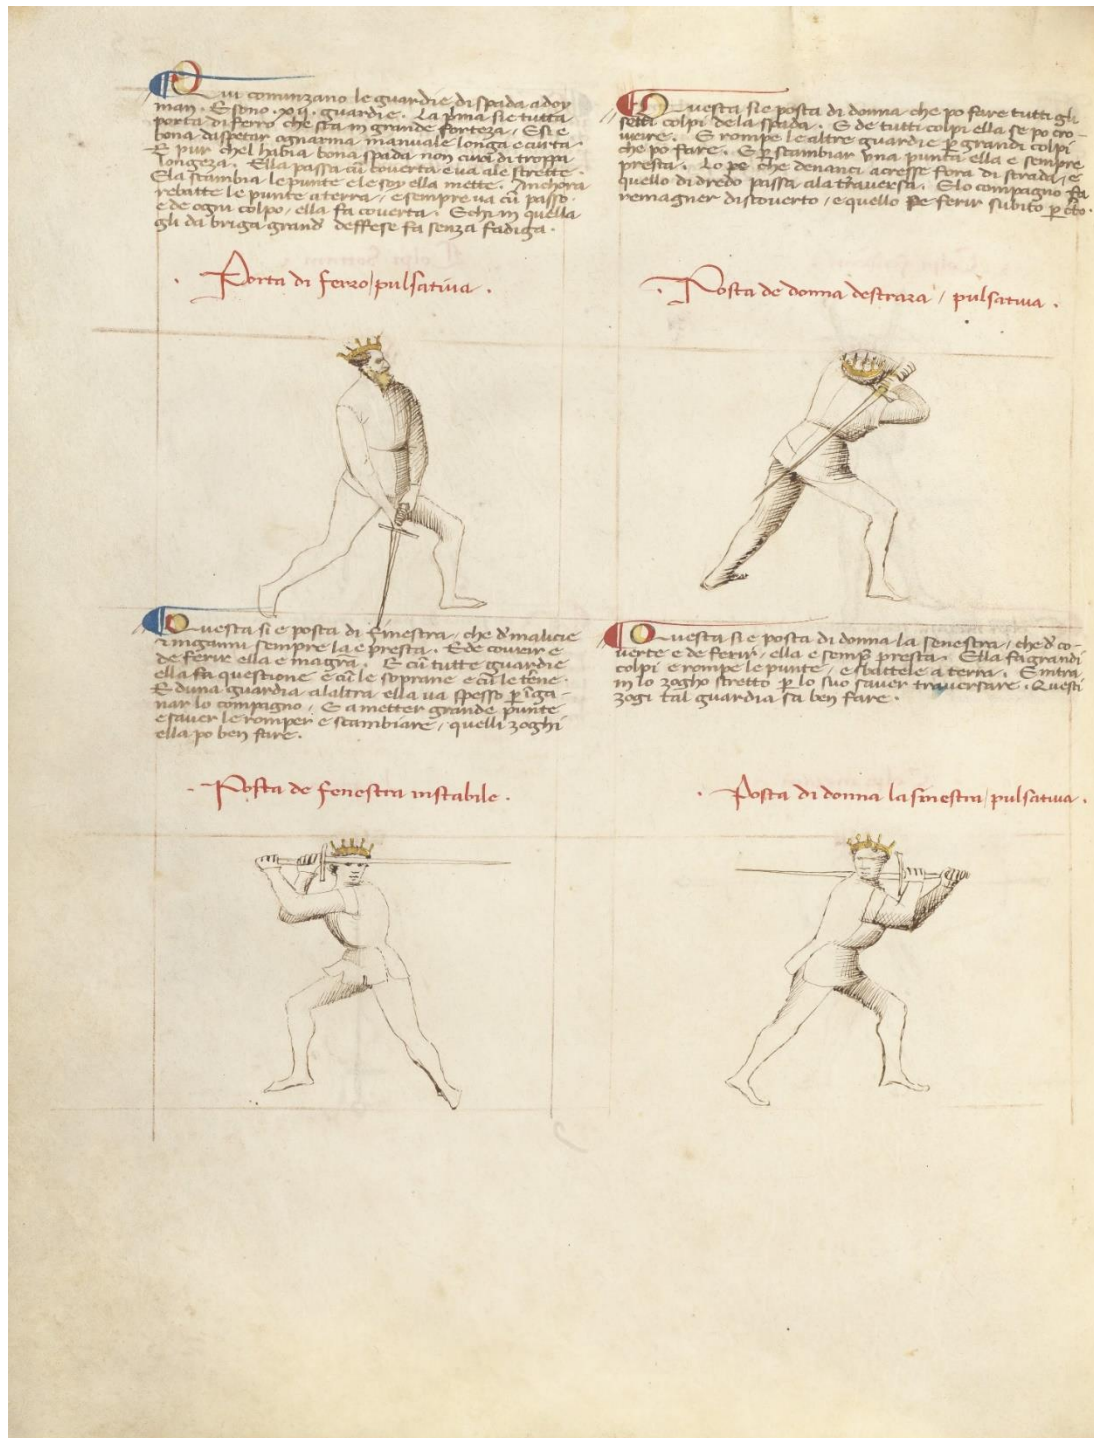 Qui cominzano le guardie di spada a doy
man. E sono .xij. guardie. La p̃ma sie tutta
porta di ferro che sta in grande forteza, E si e
bona daspetar ognarma manuale longa e curta.
E pur chel habia bona spada non cura di troppa
longeza. Ella passa cũ coverta e va ale strette.
Ela scambia le punte e le soy ella mette. Anchora
rebatte le punte a terra, e sempre va cũ passo.
e de ogni colpo, ella fa coverta. E chi in quella
gli da briga grand' deffese fa senza fadiga.
. Porta di ferro, pulsativa .
Questa sie posta di donna che po fare tutti gli
setti colpi dela spada. E de tutti colpi ella se po cro-
vrire. E rompe le altre guardie p̱ grandi colpi
che po fare. E p̱ scambiar una punta ella e sempre
presta. Lo pe che denanci acresse fora di strada, e
quello di dredo passa ala traversa. E lo compagno fa
remagner discoverto, e quello pe ferir subito p̱ c̃to.
. Posta de donna destraza, pulsativa .
Questa si e posta di finestra, che d' malicie
e inganni sempre la e presta. E de covrir e
de ferir ella e magr̃a. E cũ tutte guardie
ella fa questione e cũ le soprane e cũ le tẽne.
E duna guardia alaltra ella va spesso p̱ ĩga-
nar lo compagno. E a metter grande punte
e saver le romper e scambiare, quelli zoghi
ella po ben fare.
. Posta de fenestra instabile .
Questa si e posta di donna la senestra, che d' co-
verte e de ferir, ella e semp̃ presta. Ella fa grandi
colpi e rompe le punte, e sbattele a terra. E intra
in lo zogho stretto p̱ lo suo saver traversare. Questi
zogi tal guardia sa ben fare.
. Posta di donna la sinestra, pulsativa .